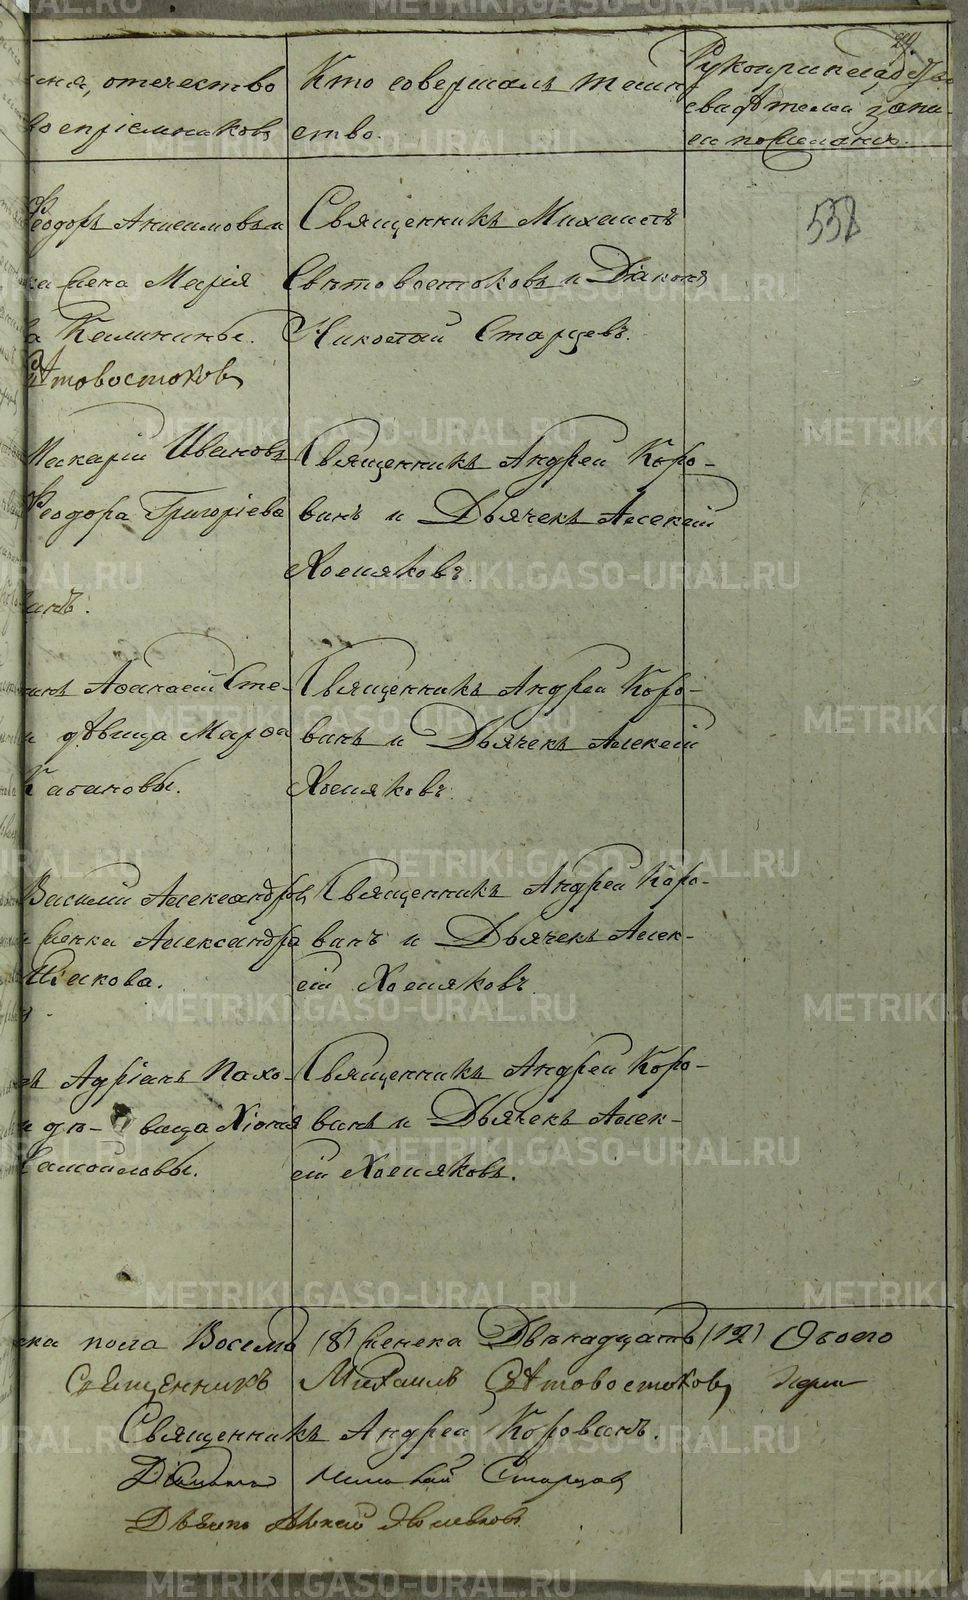 отечество
воспрiемниковъ
Кто совершалъ таин
ство.
Рукоприкладство
свидѣтелей запи-
си по желанiю.
558
Феодоръ Анисимовъ и
жена Марiя
Калинины.
Свѣтовостоковъ
Священникъ Михаилъ
Свѣтовостоковъ и Дiаконъ
Николай Старцевъ.
Макарiй Ивановъ
Феодора Григорiева
Священникъ Андрей Коро-
винъ и Дьячекъ Алексiй
Хомяковъ.
Аѳанасiй Сте-
и дѣвица Марѳа
Кабановы.
Священникъ Андрей Коро-
винъ и Дьячекъ Алексiй
Хомяковъ.
Василiй Александровъ
и женка Александра
Священникъ Андрей Коро-
винъ и Дьячекъ Алек-
сiй Хомяковъ.
Адрiанъ Пахо-
и дѣ- вица Хiонiя
Самойловы.
Священникъ Андрей Коро-
винъ и Дьячекъ Алек-
сiй Хомяковъ.
пола Восемь (8) женска Двѣнадцать (12) Обоего
Священникъ Михаилъ Свѣтовостоковъ
Священникъ Андрей Коровинъ.
Дiаконъ Николай Старцовъ
Дьячекъ Алексiй Хомяковъ
METRIKI.GASO-URAL.RU